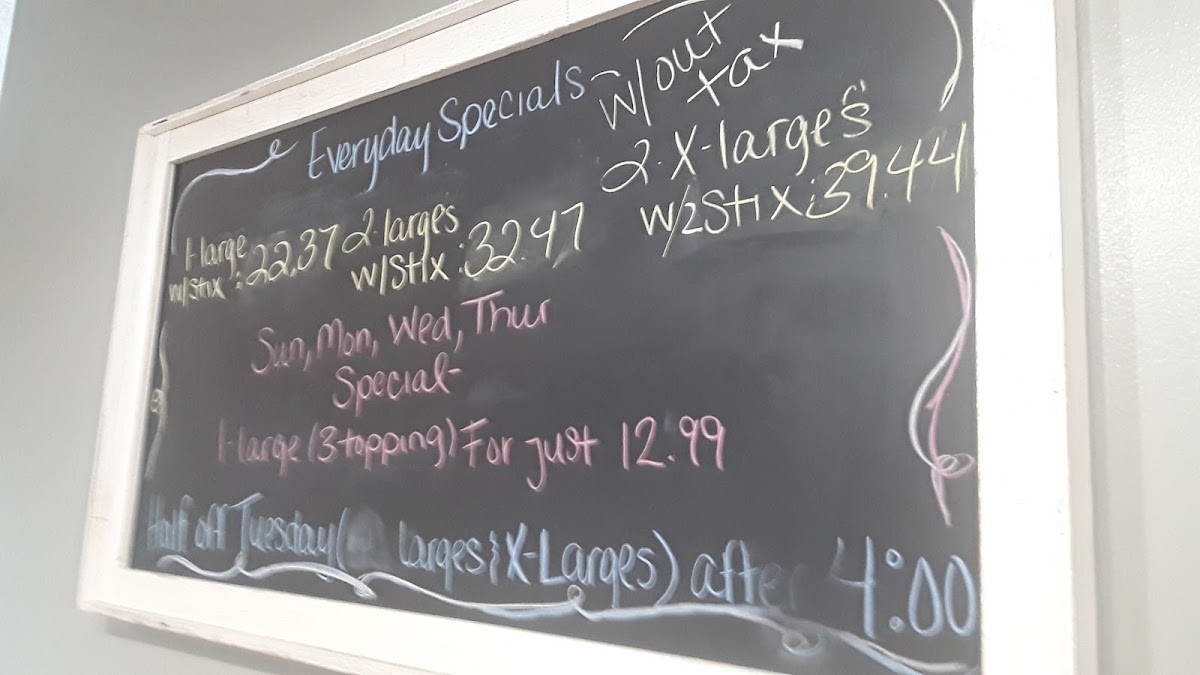 Everyday Specials - w/out tax
1-large w/stix : 22.37
2-large's w/Stix : 32.47
2-X-large's w/2Stix : 39.44
Sun, Mon, Wed, Thur
Special-
1-large (3 topping) For just 12.99
Half off Tuesday ( larges & X-Larges) after 4:00